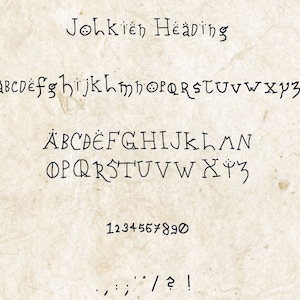 Jolkien Heading
abcdëfghijklmnopqrstuvwxyz
ÄBCDËFGHIJKLMN
OPQRSTUVWXŸZ
1234567890
.,:;'"/?!